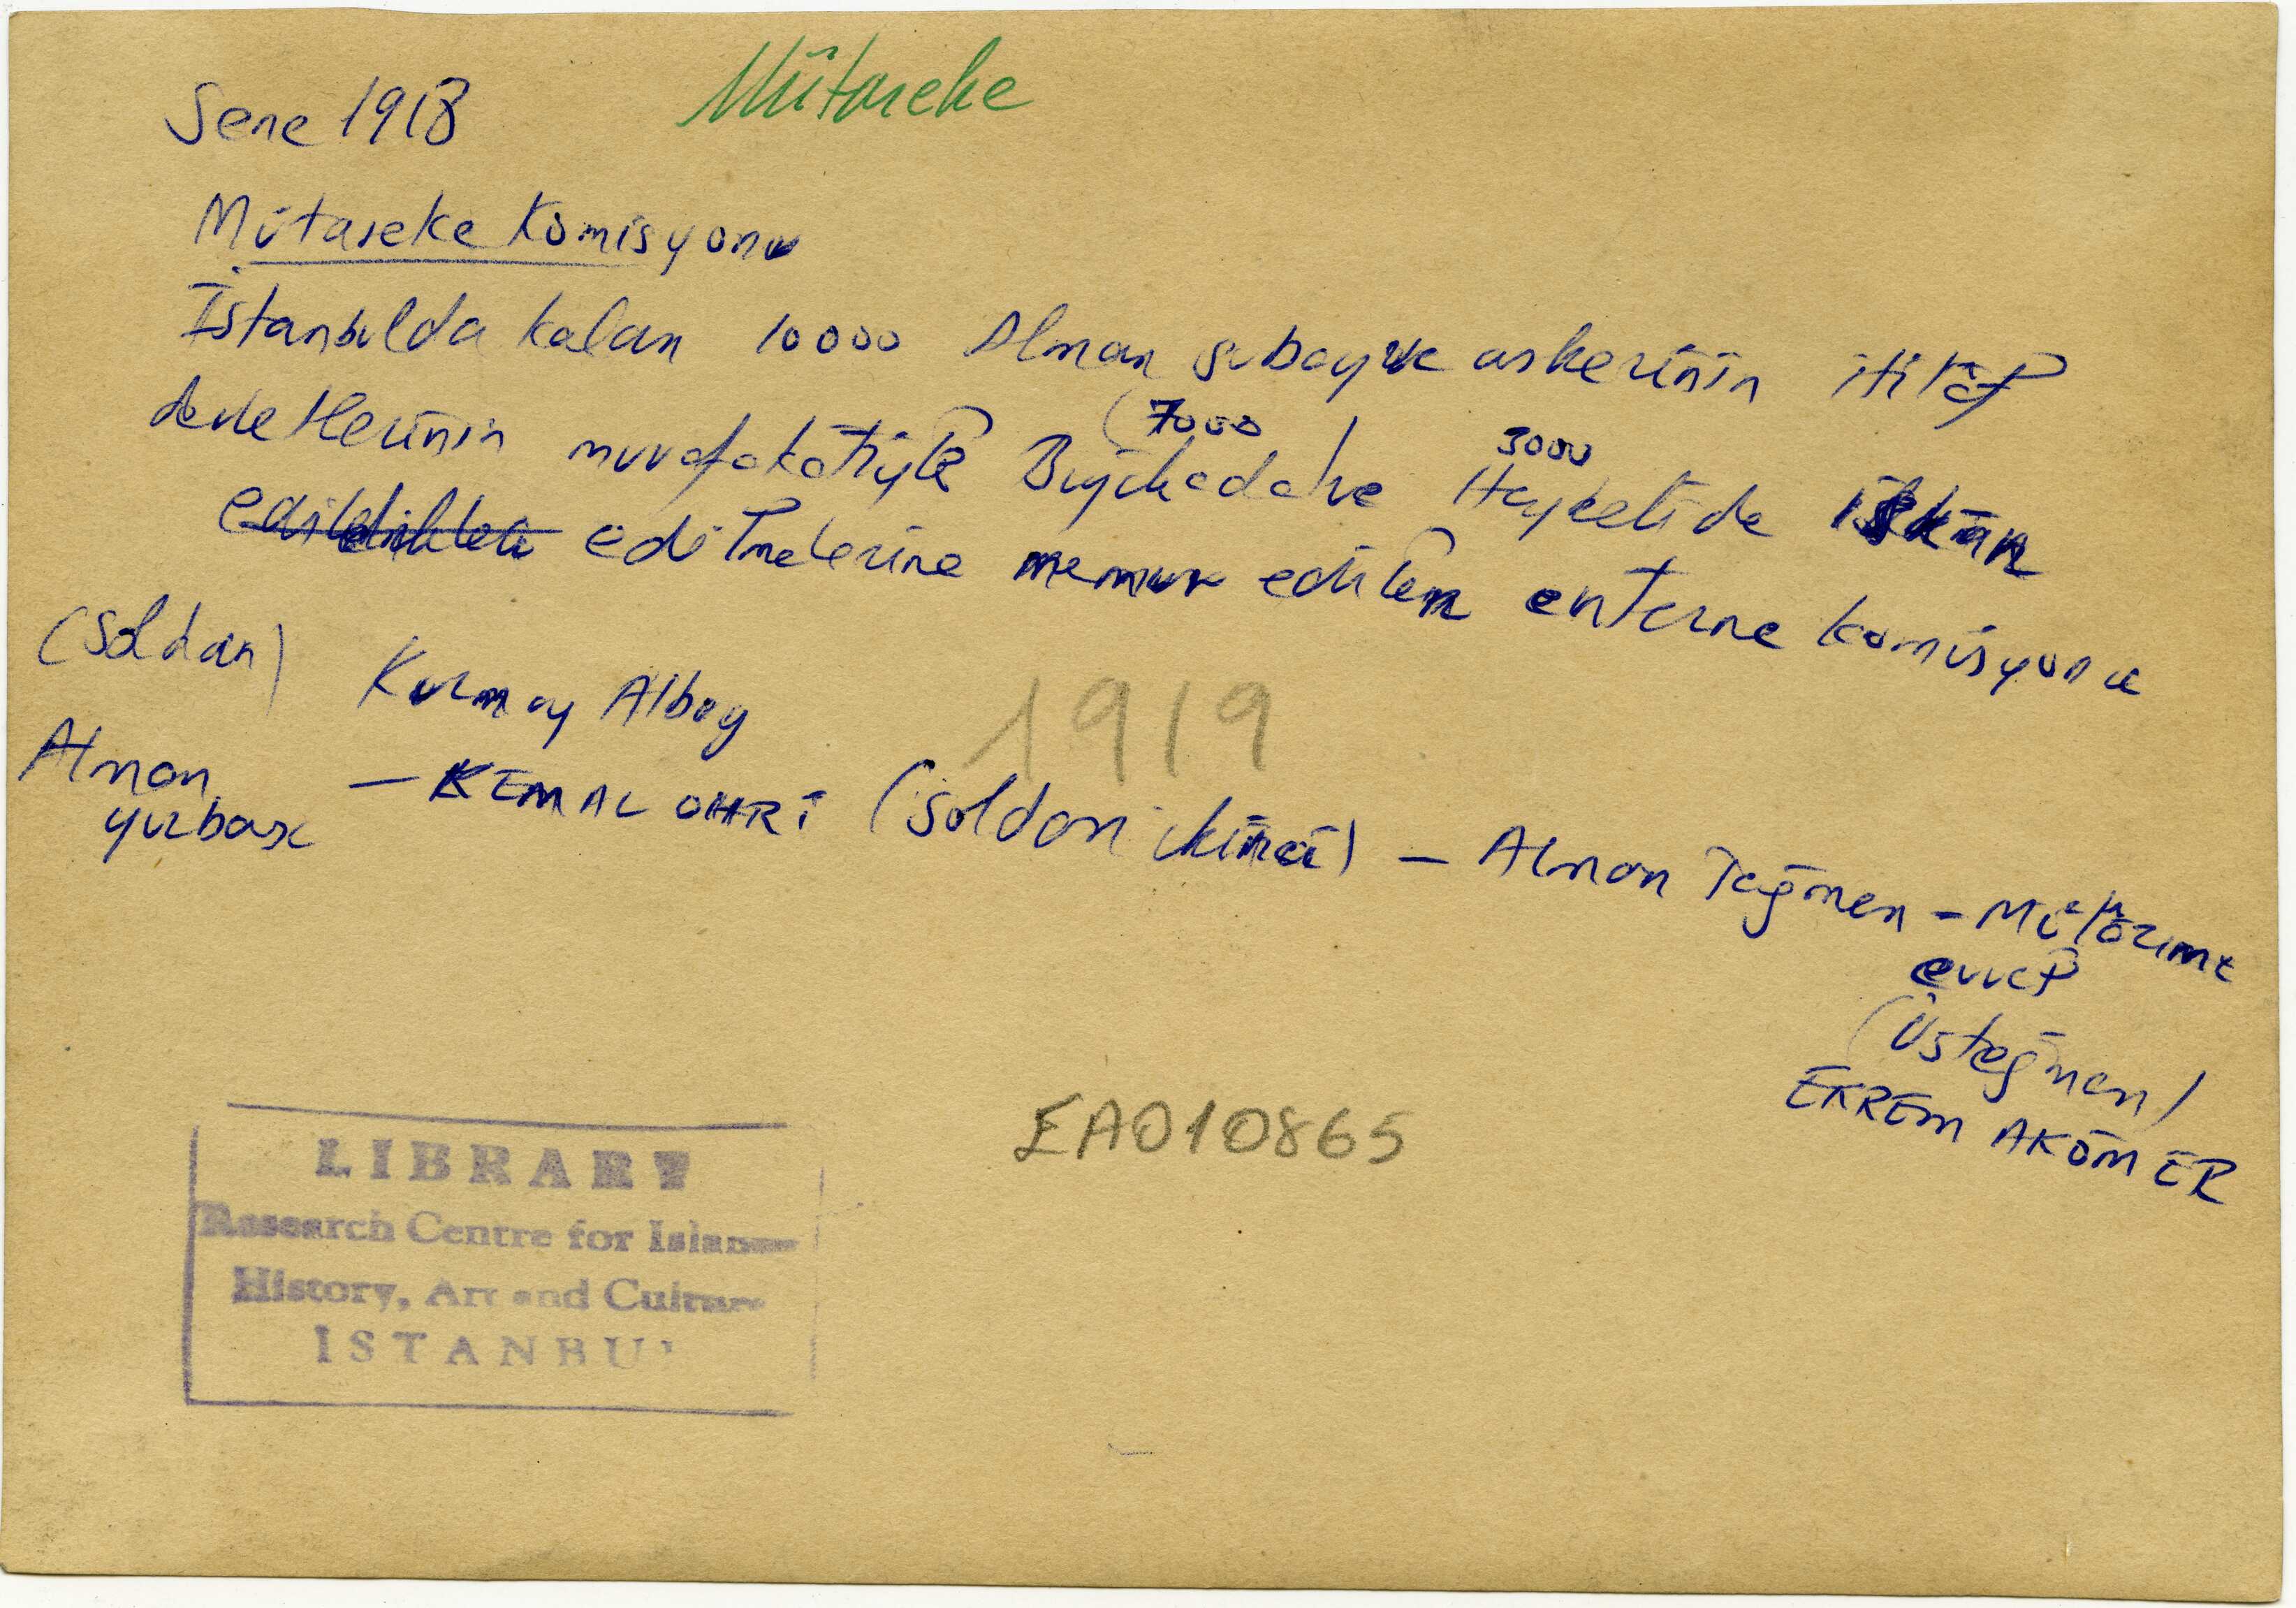 Mütareke
Sene 1918
Mütareke Komisyonu
İstanbulda kalan 10000 Alman subay ve askerinin itilâf
devletlerinin muvafakatiyle (7000) Büyükada ve 3000 Heybelide iskân
edildikleri edilmelerine memur edilen enterne komisyonu
(Soldan) Kurmay Albay
Alman yüzbaşı — KEMAL OHRİ (Soldan ikinci) — Alman Teğmen – Mülâzımı
evvel
(Üsteğmen)
EKREM AKÖMER
1919
EA010865
LIBRARY
Research Centre for Islamic
History, Art and Culture
ISTANBUL